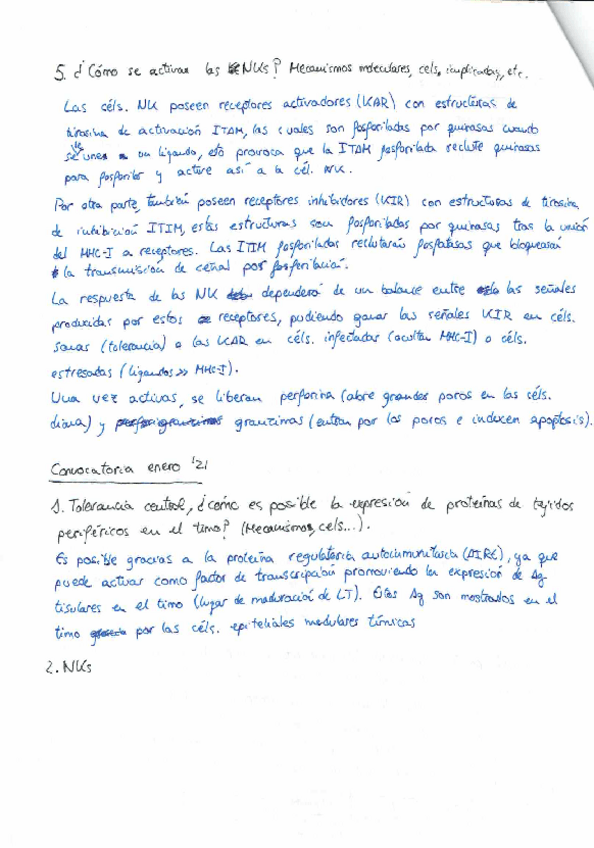 5. ¿Cómo se activan las NKs? Mecanismos moleculares, cels, implicadas, etc.
Las céls. NK poseen receptores activadores (KAR) con estructuras de
tirosina de activación ITAM, las cuales son fosforiladas por quinasas cuando
se unen a un ligando, esto provoca que la ITAM fosforilada reclute quinasas
para fosforilar y active así a la cél. NK.
Por otra parte, también poseen receptores inhibidores (KIR) con estructuras de tirosina
de inhibición ITIM, estas estructuras son fosforiladas por quinasas tras la unión
del MHC-I a receptores. Las ITIM fosforiladas reclutarán fosfatasas que bloquearán
la transmisión de señal por fosforilación.
La respuesta de las NK dependerá de un balance entre las señales
producidas por estos receptores, pudiendo ganar las señales KIR en céls.
sanas (tolerancia) o las KAR en céls. infectadas (ocultan MHC-I) o céls.
estresadas (ligandos >> MHC-I).
Una vez activas, se liberan perforina (abre grandes poros en las céls.
diana) y granzimas (entran por los poros e inducen apoptosis).
Convocatoria enero '21
1. Tolerancia central, ¿cómo es posible la expresión de proteínas de tejidos
periféricos en el timo? (Mecanismos, cels...).
Es posible gracias a la proteína reguladora autoinmunitaria (AIRE), ya que
puede activar como factor de transcripción promoviendo la expresión de Ag
tisulares en el timo (lugar de maduración de LT). Estos Ag son mostrados en el
timo por las céls. epiteliales medulares tímicas
2. NKs